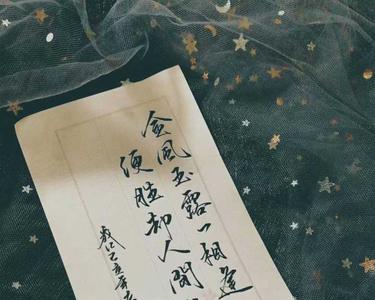 金風玉露一相逢
便胜却人間